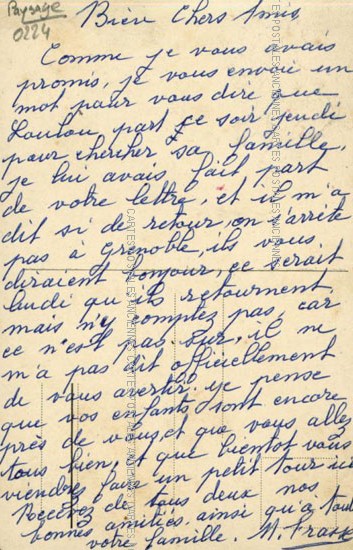 Paysage
0224
Bien Chers Amis
Comme je vous avais
promis, je vous envoie un
mot pour vous dire que
Loulou part ce soir jeudi
pour chercher sa famille,
je lui avais fait part
de votre lettre, et il m'a
dit si de retour, on s'arrite
pas à Grenoble, ils vous
diraient bonjour, ce serait
lundi qu'ils retournent,
mais n'y comptez pas, car
ce n'est pas sur, il ne
m'a pas dit officiellement
de vous avertir. je pense
que vos enfants sont encore
près de vous, et que vous allez
tous bien, et que bientot vous
viendrez faire un petit tour ici
Recevez de tous deux nos
bonnes amitiés ainsi qu'à toute
votre famille. M.
CARTES-POSTALES-ANCIENNES